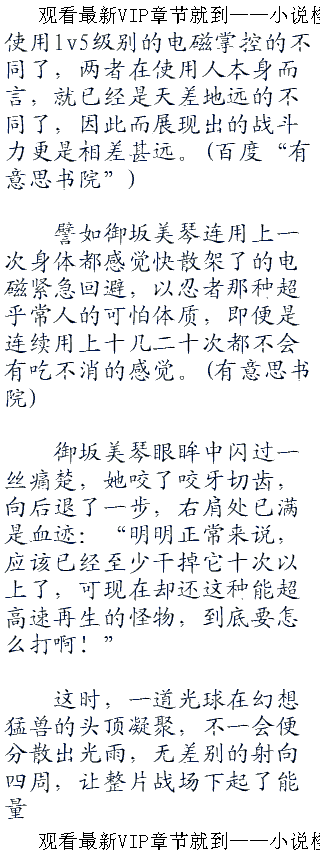 观看最新VIP章节就到——小说楼
使用lv5级别的电磁掌控的不
同了，两者在使用人本身而
言，就已经是天差地远的不
同了，因此而展现出的战斗
力更是相差甚远。(百度“有
意思书院”)
譬如御坂美琴连用上一
次身体都感觉快散架了的电
磁紧急回避，以忍者那种超
乎常人的可怕体质，即便是
连续用上十几二十次都不会
有吃不消的感觉。(有意思书
院)
御坂美琴眼眸中闪过一
丝痛楚，她咬了咬牙切齿，
向后退了一步，右肩处已满
是血迹：“明明正常来说，
应该已经至少干掉它十次以
上了，可现在却还这种能超
高速再生的怪物，到底要怎
么打啊！”
这时，一道光球在幻想
猛兽的头顶凝聚，不一会便
分散出光雨，无差别的射向
四周，让整片战场下起了能
量
观看最新VIP章节就到——小说楼